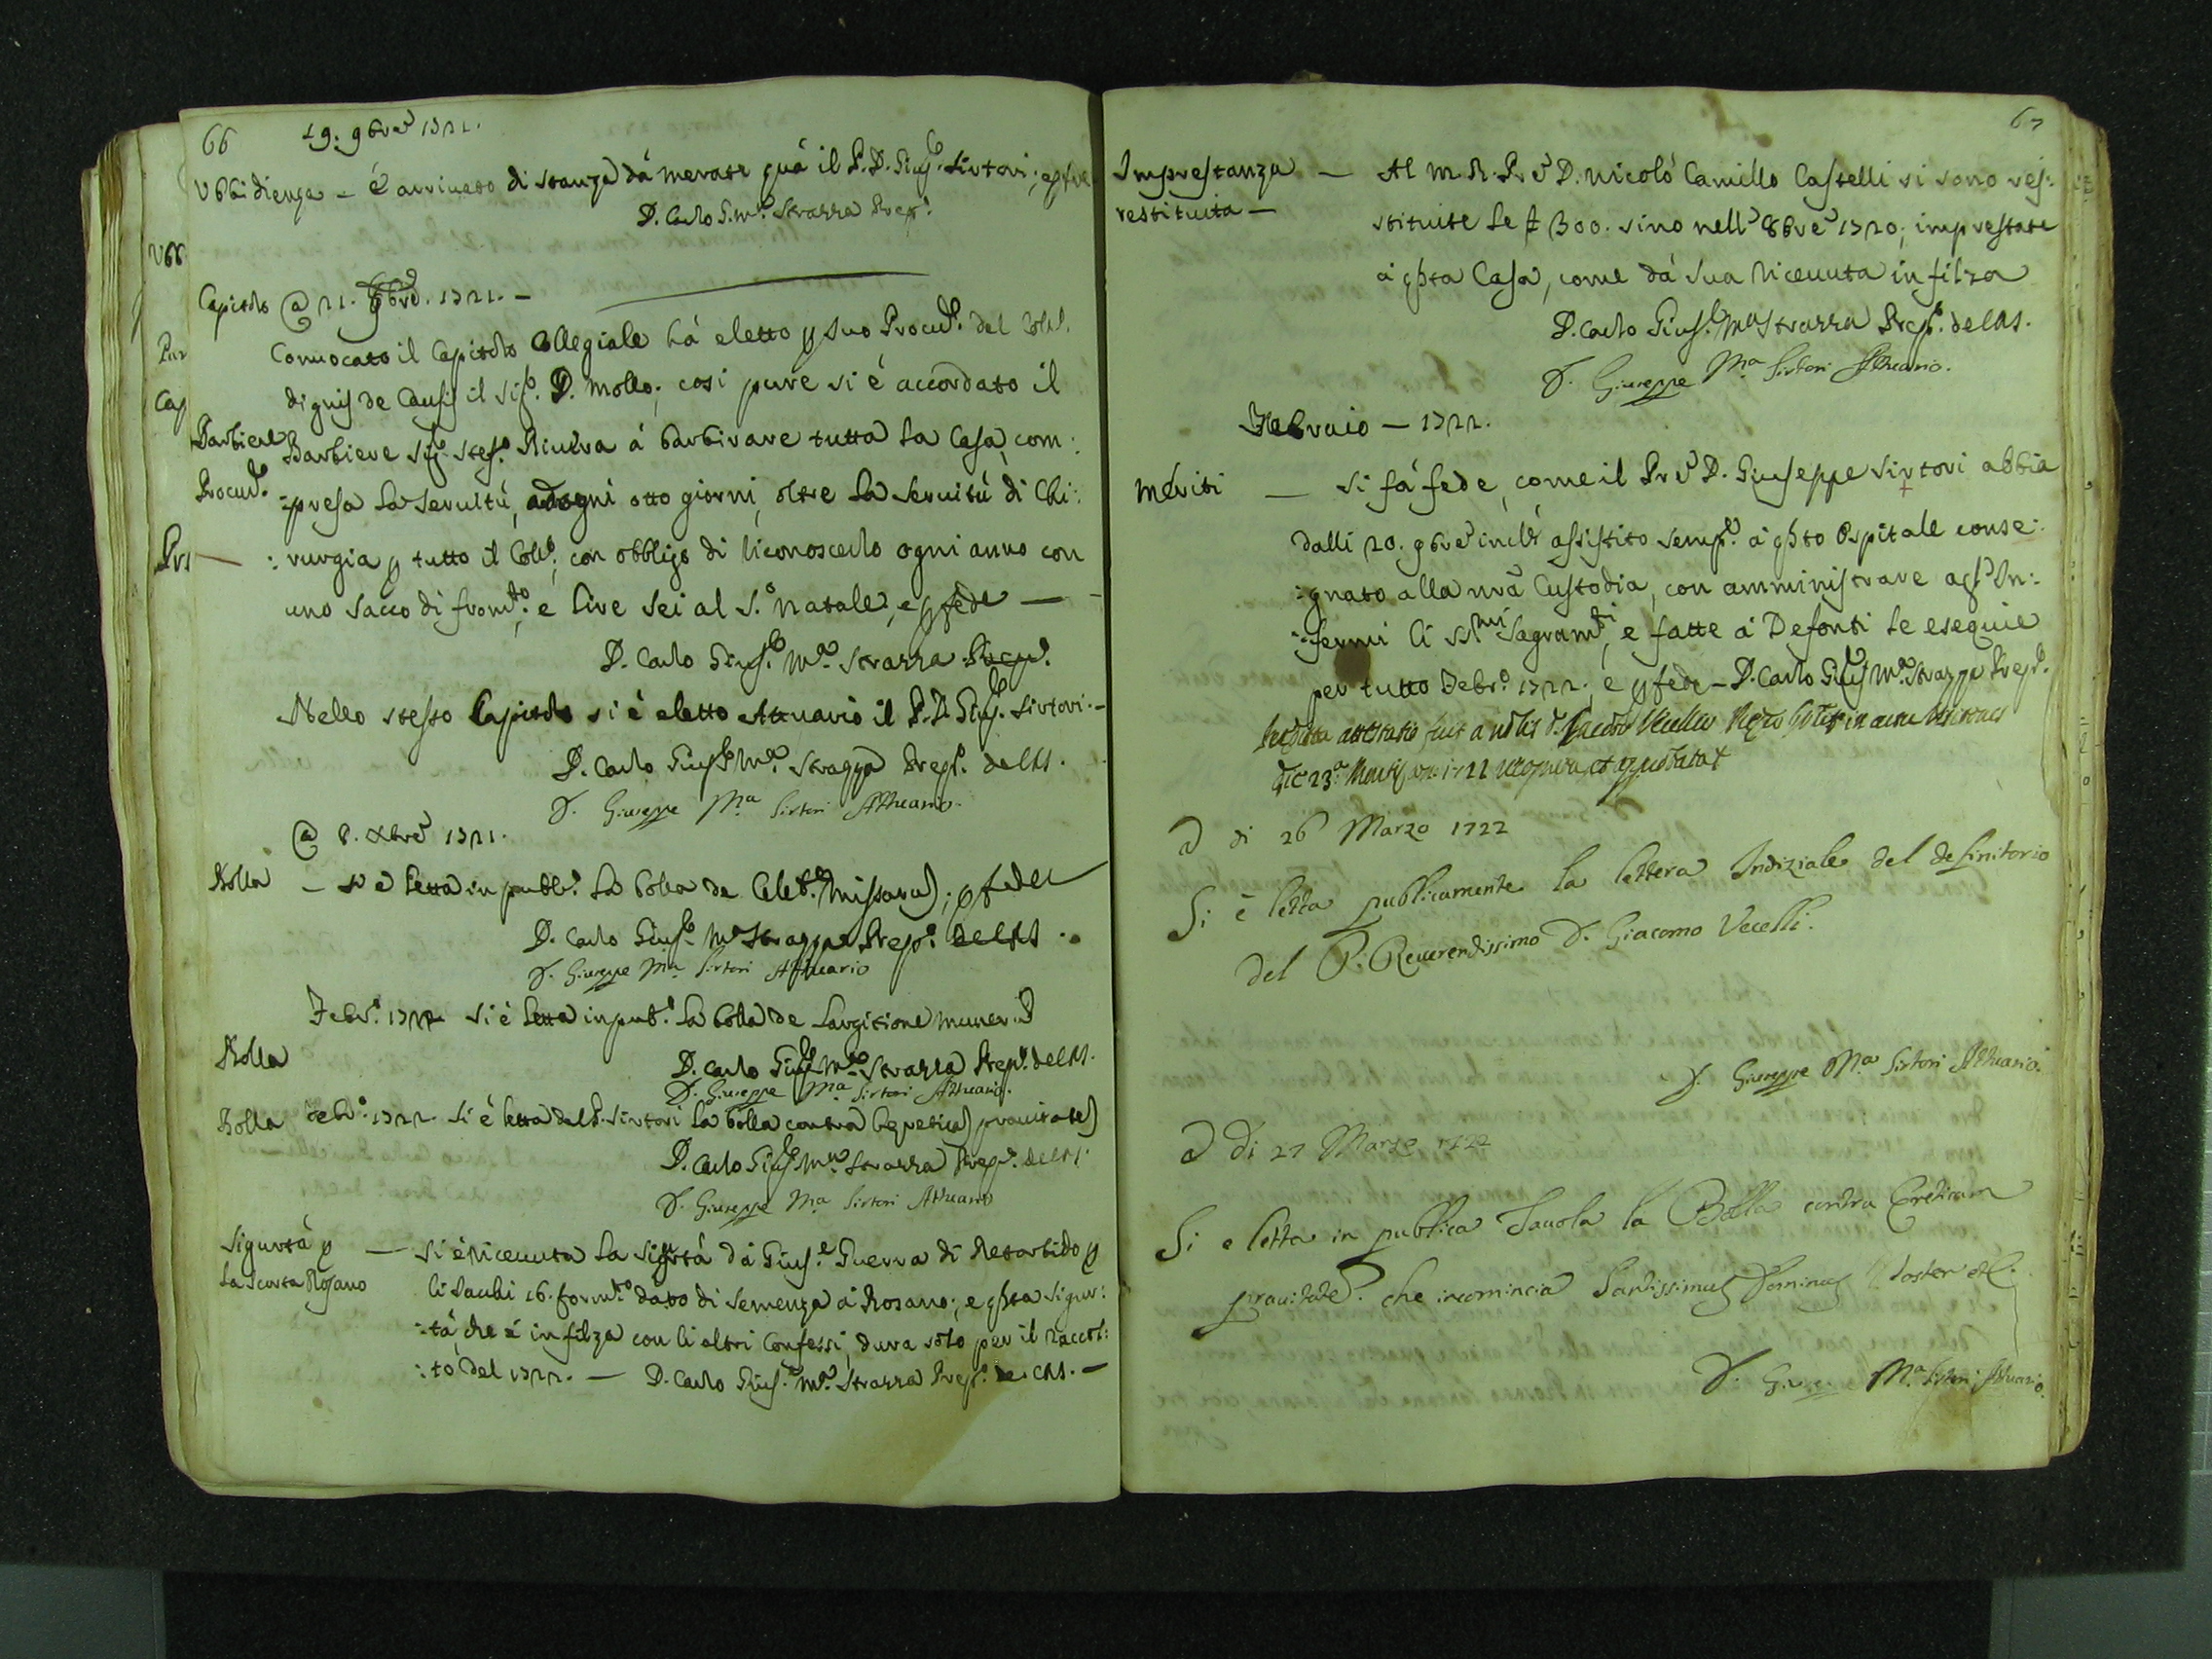 66 19. 9bre 1721.
Vbbidienza – é arriuato di stanza dá Merate quá il P. D. Gius.e Sirtori; e p fede
D. Carlo G. M.a Strazza Prep.o
Capitolo @ 21. 9bre. 1721. –
Conuocato il Capitolo Collegiale há eletto p suo Procur.e del Coll.o
dignis de Causis il Sig.r D. Mollo; cosi pure si é accordato il
Barbiere Barbiere Sig.r Stef.o Riueva á barbirare tutta la Casa, com:
Procur.e :presa la Seruitú, ad ogni otto giorni, oltre la Seruitú di Chi:
:rurgia p tutto il Coll.o; con obbligo di riconoscerlo ogni anno con
uno sacco di from.to, e lire sei al S.o Natale, e p fede —
D. Carlo Gius.e M.a Strazza
Nello stesso Capitolo si é eletto Attuario il P. D. Gius.e Sirtori. –
D. Carlo Gius.e M.a Strazza Prep.o del Cl.
D. Giuseppe M.a Sirtori Attuario.
@ 8. Xbre 1721.
Bolla – si é letta in pubb.o la bolla de Celeb.e Missaru; p fede
D. Carlo Gius.e M.a Strazza Prep.o del Cl
D. Giuseppe M.a Sirtori Attuario
Febr.o 1722 si é letta in pub.o la bolla de largitione muner.
Bolla
D. Carlo Gius.e M.a Strazza Prep.o del Cl.
D. Giuseppe M.a Sirtori Attuario.
Bolla Febr.o 1722 si é letta dal P. Sirtori la bolla contra heretica prauitate
D. Carlo Gius.e M.a Strazza Prep.o del Cl.
D. Giuseppe M.a Sirtori Attuario
Sigurtá p — si é riceuuta la sigurtá dá Gius.e Guerra di Retorbido p
la scorta Rosano li sachi 16. form.to dato di semenza á Rosano; e qsta sigur:
:tá, che é in filza con li altri Confessi, dura solo per il raccol:
:to del 1722. — D. Carlo Gius.e M.a Strazza Prep.o de Cl. –
67
Imprestanza – Al M. R. Pre D. Nicoló Camillo Castelli si sono res:
restituita – stituite le £ 300. sino nell' 8bre 1720; imprestate
á qsta Casa, come dá sua riceuuta in filza
D. Carlo Gius.e M.a Strazza Prep.o del Cl.
D. Giuseppe M.a Sirtori Attuario.
Febraio – 1722.
Meriti — si fá fede, come il Pre D. Giuseppe Sirtori abbia
dalli 20. 9bre assistito semp.e á qsto Ospitale conse:
:gnato alla nra Custodia, con amministrare agl' In:
:fermi li SS.mi Sagram.ti, e fatte á Defonti le esequie
per tutto Febr.o 1722. é p fede – D. Carlo Gius.e M.a Strazza Prep.o
attestatio fuit a nobis D. Jacobo Vecellio in actu visitationis
die 23.a 1722 recognita, et approbata
A di 26 Marzo 1722
Si è letta publicamente la lettera Indiziale del definitorio
del P. Reuerendissimo D. Giacomo Vecelli.
D. Giuseppe M.a Sirtori Attuario.
A di 27 Marzo 1722
Si e letta in publica Tauola la Bolla contra Ereticam
prauitate. che incomincia Santissimus Dominus Noster etc.
D. Giuseppe M.a Sirtori Attuario.